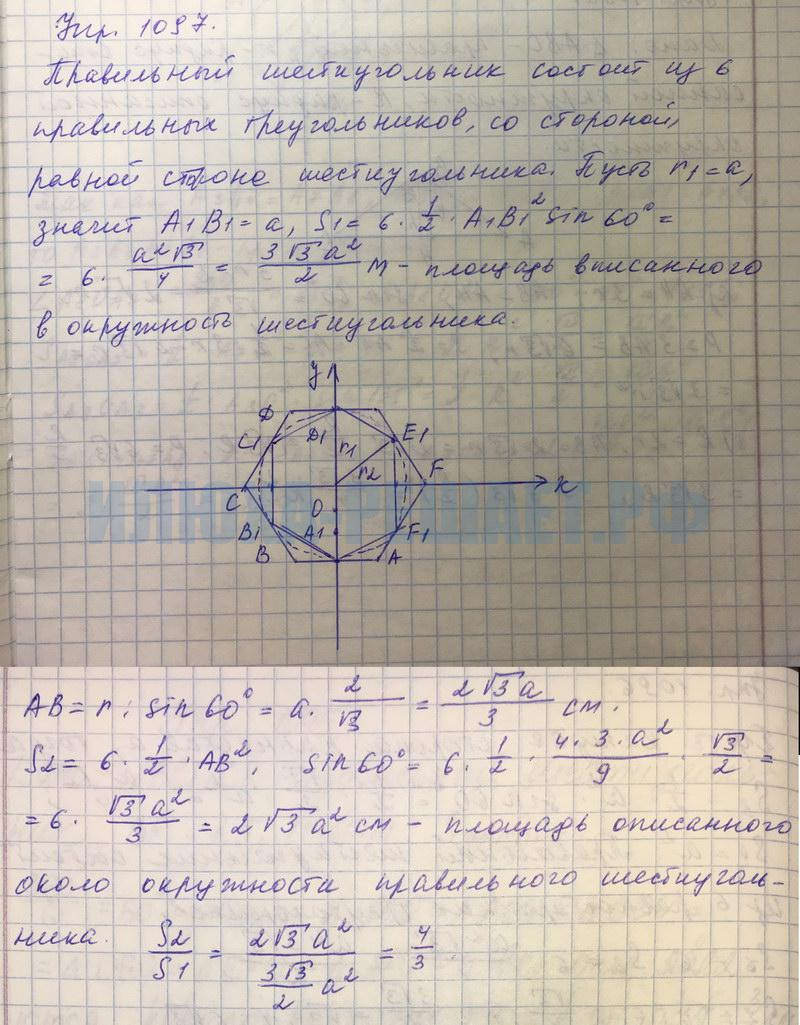 Упр. 1097.
Правильный шестиугольник состоит из 6
правильных треугольников, со стороной,
равной стороне шестиугольника. Пусть r1 = a,
значит A1B1 = a, S1 = 6 · 1/2 · A1B1² sin 60° =
= 6 · a²√3/4 = 3√3a²/2 м - площадь вписанного
в окружность шестиугольника.
y
D
C1
D1
r1
E1
r2
F
C
x
O
B1
A1
F1
B
A
ИЛЮХАРЕШАЕТ.РФ
AB = r : sin 60° = a · 2/√3 = 2√3a/3 см.
S2 = 6 · 1/2 · AB², sin 60° = 6 · 1/2 · 4·3·a²/9 · √3/2 =
= 6 · √3a²/3 = 2√3a² см - площадь описанного
около окружности правильного шестиуголь-
ника. S2/S1 = 2√3a²/(3√3/2 a²) = 4/3.